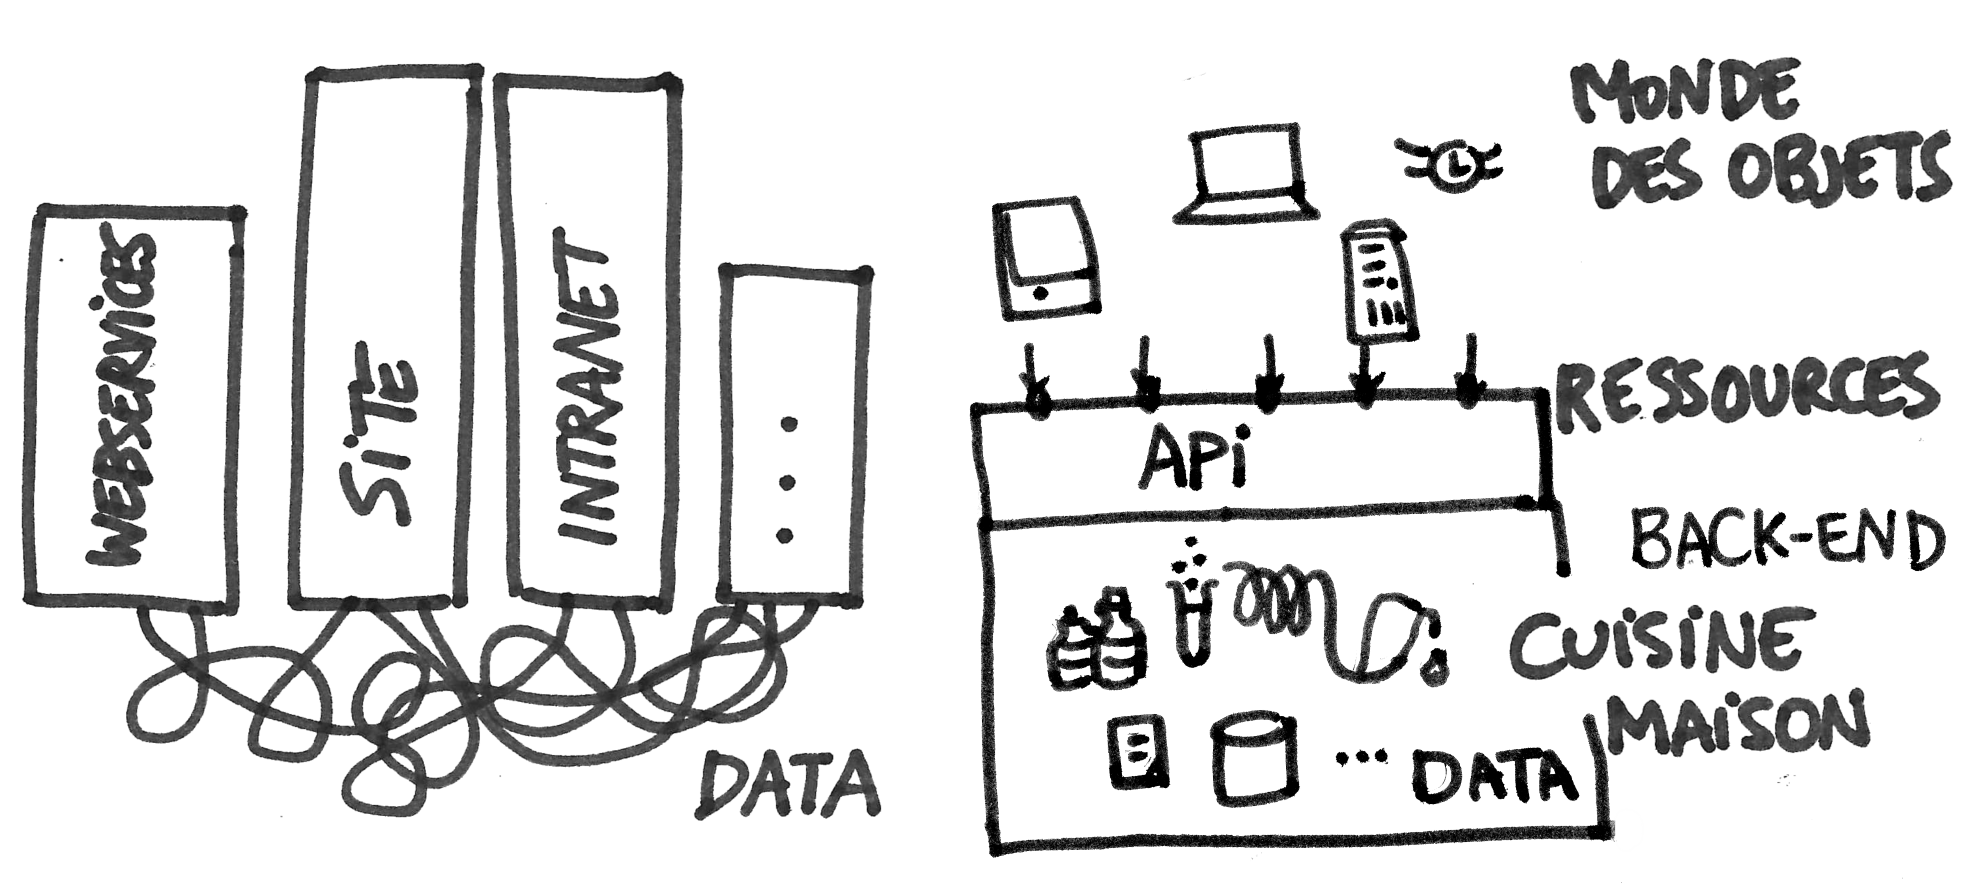 WEBSERViCES
SiTE
INTRANET
...
DATA
MONDE
DES OBJETS
RESSOURCES
APi
BACK-END
CUiSiNE
MAiSON
... DATA